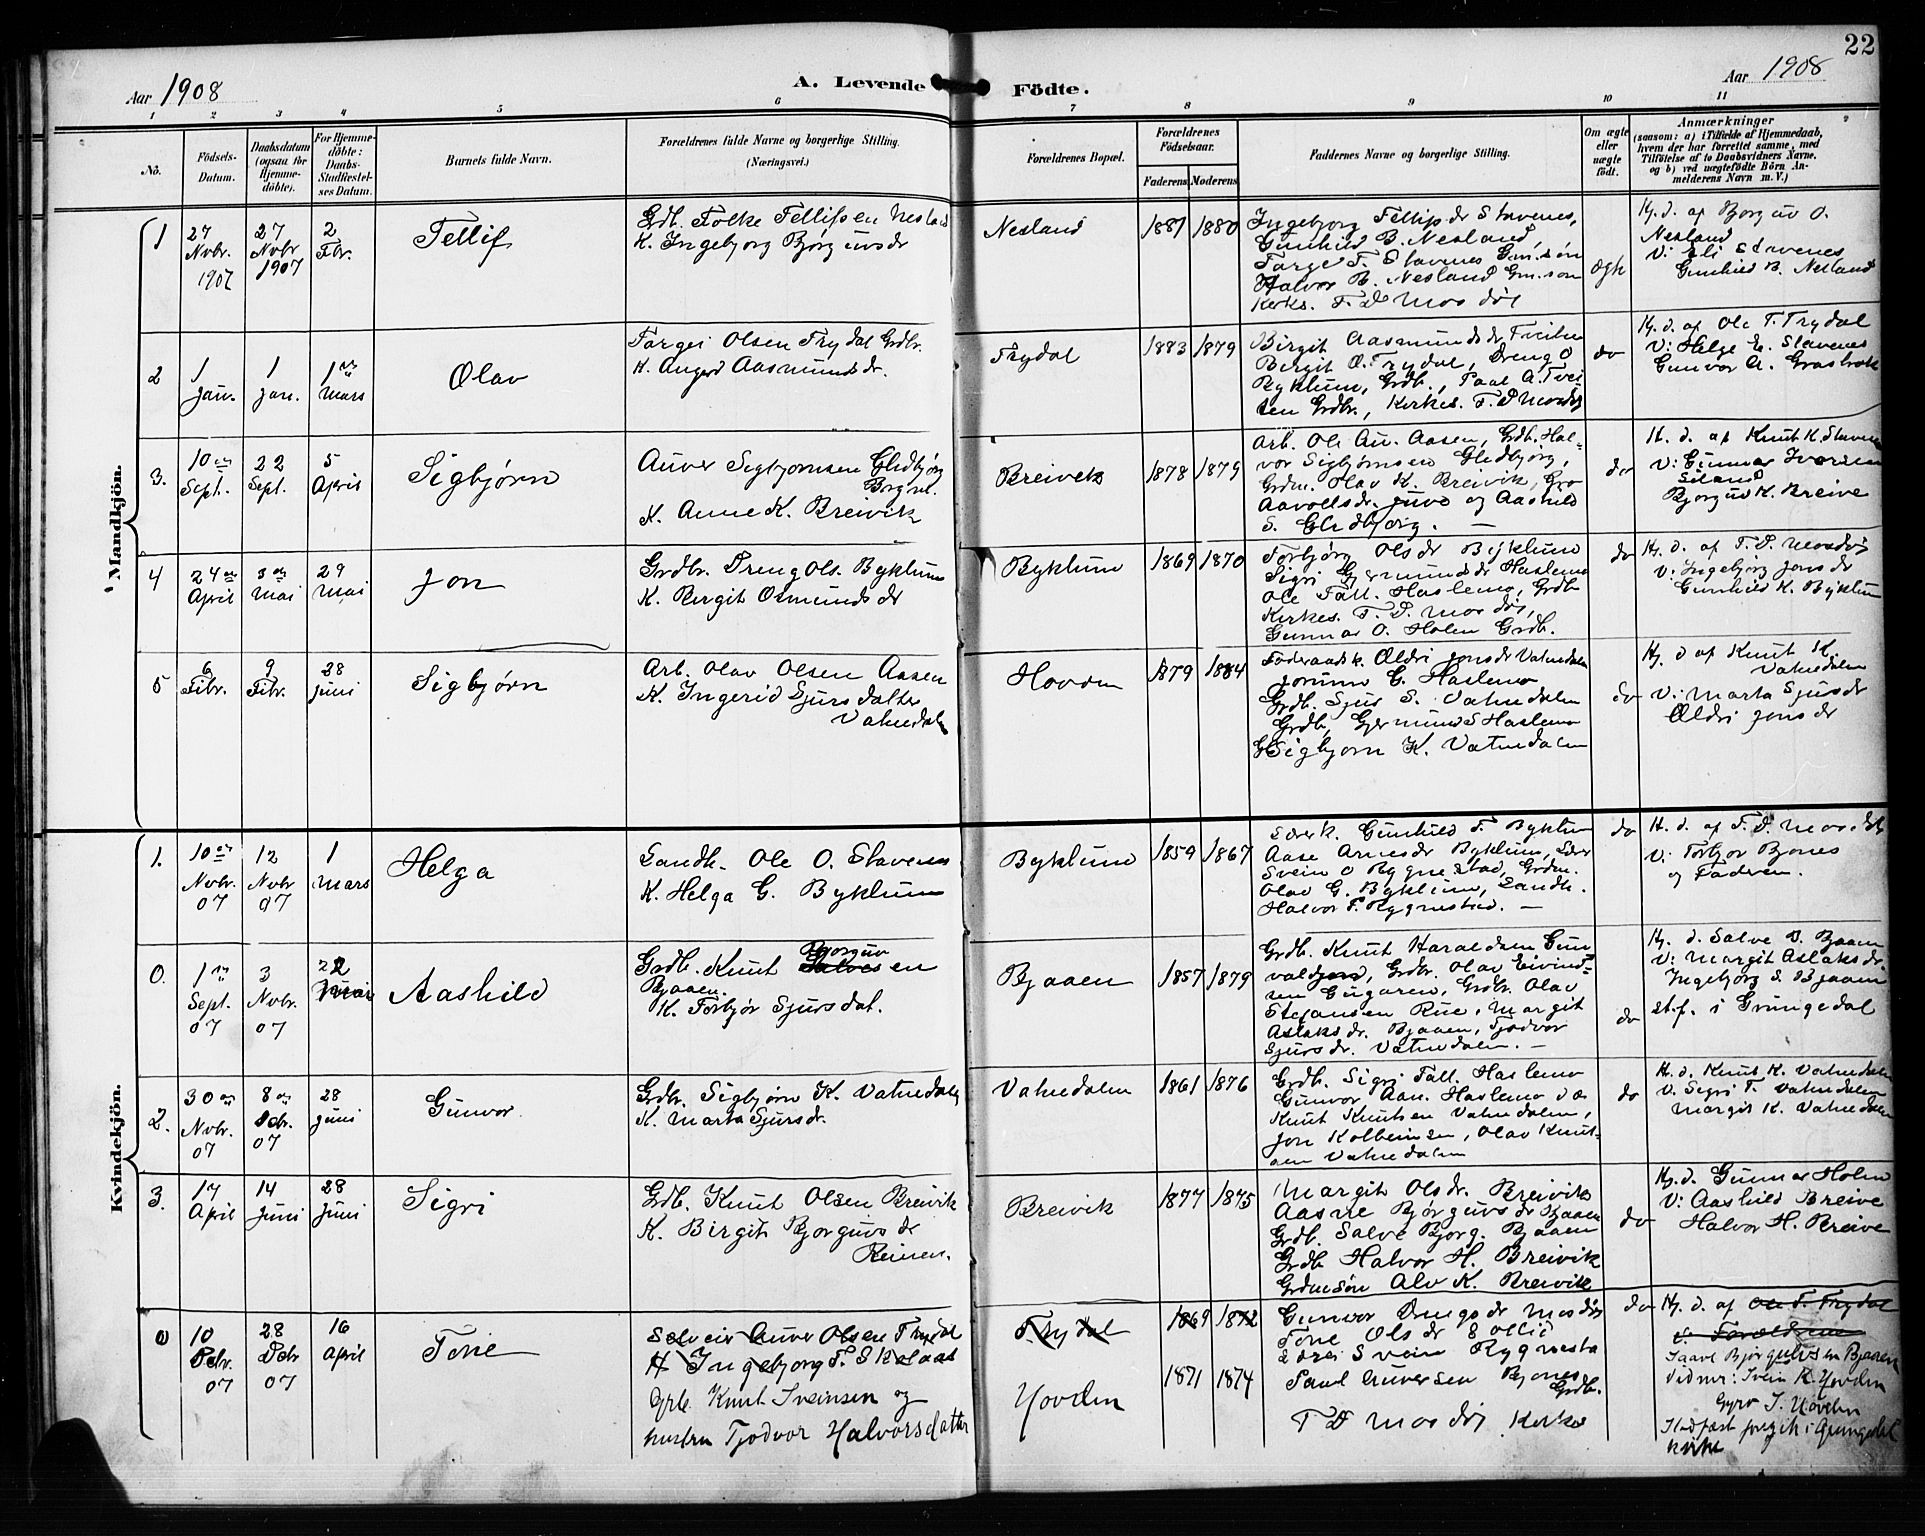 22
Aar 1908
A. Levende Födte.
Aar 1908
1 2 3 4 5 6 7 8 9 10 11
No.
Födsels-
Datum.
Daabsdatum
(ogsaa for
Hjemme-
döbte).
For Hjemme-
döbte:
Daabs-
Stadfæstel-
ses Datum.
Barnets fulde Navn.
Forældrenes fulde Navne og borgerlige Stilling.
(Næringsvei.)
Forældrenes Bopæl.
Forældrenes
Födselsaar.
Faderens Moderens
Faddernes Navne og borgerlige Stilling.
Om ægte
eller
uægte
födt.
Anmærkninger
(saasom: a) i Tilfælde af Hjemmedaab,
hvem der har forrettet samme, med
Tilföielse af to Daabsvidners Navne,
og b) ved uægtefödte Börn An-
melderens Navn m. V.)
Mandkjön.
1
27
Novbr.
1907
27
Novbr
1907
2
Fbr.
Tellif
Grdb. Folke Tellifsen Nesland
K. Ingebjorg Bjørguvsdr
Nesland
1881 1880
Ingebjorg Tellifsdr Stavenes,
Gunhild B. Nesland,
Targe T. Stavenes Gm.søn
Halvor B. Nesland Gm.søn
Kerks. T. D Mosdøl
ægte
Hj. d. af Bjorguv O.
Nesland
V: Eli Stavenes
Gunhild B. Nesland
2
1
Jan.
1
Jan.
1ste
Mars
Olav
Targei Olsen Trydal Grdbr.
K. Angerd Aasmundsdr.
Trydal
1883 1879
Birgit Aasmundsdr Tveiten
Birgit O. Trydal, Dreng O
Byklum, Grdb., Paal A. Tvei-
ten Grdbr., Kirkes. T. D Mosdøl
do
Hj. d. af Ole T. Trydal
V: Helge E. Stavenes
Gunvor A. Grasbrok
3.
10de
Sept.
22
Sept.
5
April
Sigbjørn
Auver Sigbjornsen Gledbjørg
Borgm.
K. Anne K. Breivik
Breivik
1878 1879
Arb. Ole Au. Aasen, Grdb. Hal-
vor Sigbjørnsen Gledbjørg,
Grdm. Olav K. Breivik, Gro
Aavollsdr. Juve og Aashild
S. Gledbjørg. —
do
H. d. af Knut K. Stavenes
V: Gunnar Iversen
Bjorguv K. Breive
4
24de
April
3de
Mai
29
Mai
Jon
Grdbr. Dreng Ols. Byklum
K. Birgit Osmundsdr
Byklum
1869 1870
Torbjørg Olsdr Byklum
Sigri Gjermundsdr Haslemo
Ole Tall. Haslemo, Grdb
Kirkes. T. D. Mosdøl,
Gunnar O. Holen Grdb.
do
Hj. d. af T. D. Mosdøl
V: Ingebjorg Jonsdr
Gunhild K. Byklum
5
6
Febr.
9
Febr.
28
Juni
Sigbjørn
Arb. Olav Olsen Aasen
K. Ingerid Sjursdatter
Vatnedalen
Hovden
1879 1884
Føderaadsk. Ældri Jonsdr Vatnedalen
Jorunn G. Haslemo
Grdb. Sjur S. Vatnedalen
Grdb. Gjermund S Haslemo
Sigbjorn K. Vatnedalen
do
Hj. d af Knut K.
Vatnedalen
V: Marta Sjursdr
Ældri Jonsdr
Kvindekjön.
1.
10de
Novbr.
07
12
Novbr
07
1
Mars
Helga
Landh. Ole O. Stavenes
K. Helga G. Byklum
Byklum
1859 1867
Gunhild T. Byklum
Aase Arnesdr Byklum,
Svein O Rygnestad, Grdm.
Olav G. Byklum, Landh.
Halvor T. Rygnestad. —
do
H. d. af T. D. Mosdøl
V: Torbjor Bjones
og Faderen.
0.
1ste
Sept.
07
3
Novbr.
07
22
Mai
Aashild
Grdb. Knut Salvesen
Bjorguv
Bjaaen.
K. Torbjør Sjursdat.
Bjaaen
1857 1879
Grdb. Knut Haraldsen Gun
valdjord, Grdbr. Olav Eivind-
sen Gugaren, Grdb. Olav
Stefansen Rue, Margit
Aslaksdr. Bjaaen, Tjodvor
Sjursdr. Vatnedalen. —
do
Hj. d. Salve B. Bjaaen
V: Margit Aslaksdr.
Ingebjorg S. Bjaaen
st.f. i Grungedal
2.
30te
Novbr.
07
8de
Debr.
07
28
Juni
Gunvor
Grdbr. Sigbjørn K. Vatnedalen
K. Marta Sjursdr.
Vatnedalen
1861 1876
Grdb. Sigri Tall. Haslemo
Gunvor Aan. Haslemo
Knut Knutsen Vatnedalen,
Jon Kolbeinsen, Olav Knut-
sen Vatnedalen
do
H. d. Knut K. Vatnedalen
V. Sigri T. Vatnedalen
Margit K. Vatnedalen
3.
17
April
14
Juni
28
Juni
Sigri
Grdb. Knut Olsen Breivik
K. Birgit Bjorguvsdr
Reinen.
Breivik
1877 1875
Margit Olsdr. Breivik
Aasne Bjørguvsdr Bjaaen
Grdb. Salve Bjorg. Bjaaen
Grdb Halvor H. Breivik
Grdmsøn Alv K. Breivik
do
Hj. d. Gunnar Holen
V: Aashild Breive
Halvor H. Breive
0
10
Debr.
07
28
Debr
07
16
April
Tone
Selveier Auver Olsen Trydal
H Ingebjorg T. Skolaas
Grb. Knut Sveinsen og
hustru Tjodvor Halvorsdatter
Trydal
Hovden
1869 1872
1871 1874
Gunvor Drengsdr Mosdøl
Tone Olsdr
Svein Rygnestad
Paul Auversen Bjones
Grdb.
T D Mosdøl Kirkes
do
Hj. d. af Ole T. Trydal
V. Forældrene
Saave Bjørgulvsen Bjaaen
Vidner: Svein K. Hovden
Gyro S. Hovden
Stadfæst foregik i Grungedal
kirke